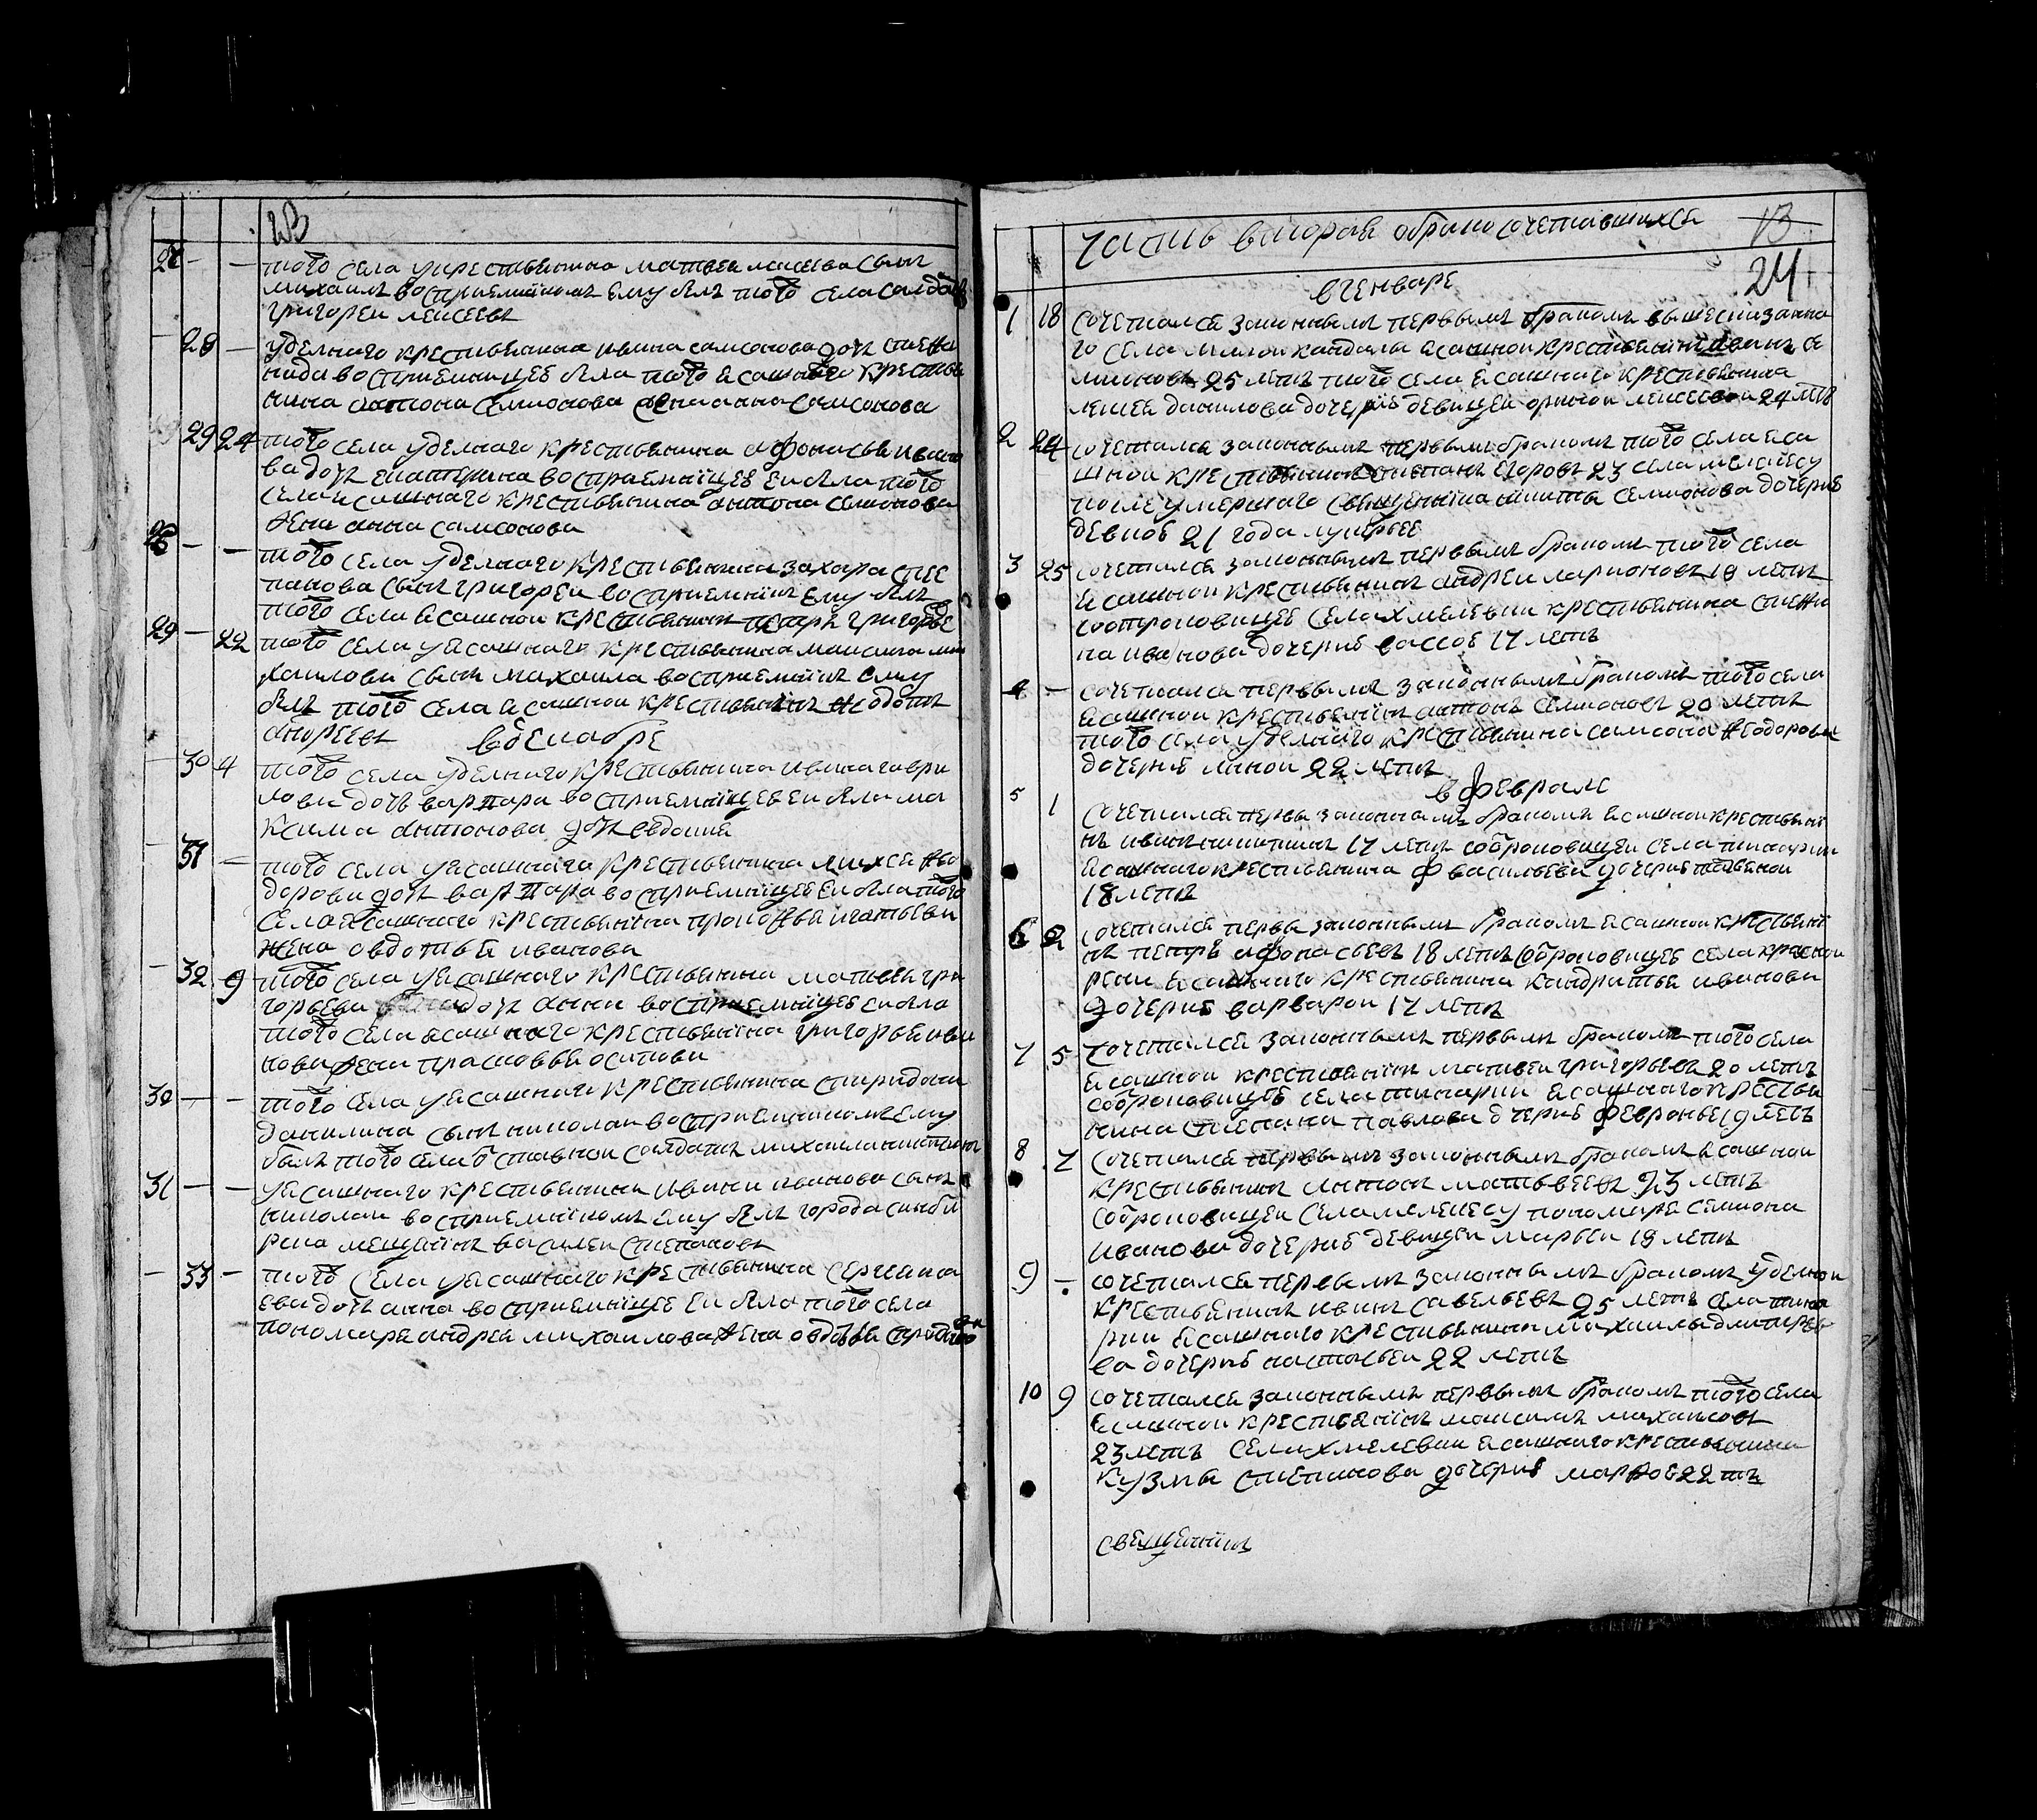 23
28 — — того села у крестьянина матвея алексеева сынъ
михаилъ восприемникомъ ему былъ того села салдатъ
григореи алексеевъ
— 28 — удельнаго крестьянина ивана самсонова дочь степа
нида восприемницею была того села ясашнаго крестья
нина антона семионова жена анна самсонова
29 24 того села удельнаго крестьянина афонасья ивано
ва дочь екатерина восприемницею еи была того
села ясашнаго крестьянина антона семионова
жена анна самсонова
— — того села удельнаго крестьянина захара сте
панова сынъ григореи восприемникъ ему былъ
того села ясашнои крестьянинъ петръ григорье
29 — 22 того села у ясашнаго крестьянина максима ми
хаилова сынъ михаила восприемникъ ему
былъ того села ясашнои крестьянинъ федотъ
андреевъ в декабре
— 30 4 того села удельнаго крестьянина ивана гаври
лова дочь варвара восприемницею еи была ма
ксима антонова дочь евдокия
— 31 — того села у ясашнаго крестьянина алексея фе
дорова дочь варвара восприемницею еи была того
села ясашнаго крестьянина прокофья игнатьева
жена овдотья иванова
— 32 9 того села у ясашнаго крестьянина матвея гри
горьева дочь анна восприемницею еи была
того села ясашнаго крестьянина григорья ива
нова жена прасковья осипова
30 — — того села у ясашнаго крестьянина спиридона
данилина сынъ николаи восприемникомъ ему
былъ того села отставнои салдатъ михаила никитинъ
31 — — у ясашнаго крестьянина ивана иванова сынъ
николаи восприемникомъ ему былъ города синби
рска мещанинъ василеи степановъ
— 33 — того села у ясашнаго крестьянина сергия
ева дочь анна восприемницею еи была того села
пономаря андрея михаилова жена овдотья спиридо
часть вторая о бракосочетавшихся 13
24
в генваре
1 18 сочетался законнымъ первымъ бракомъ вышесказанна
го села малои кандалы ясашнои крестьянинъ иванъ се
мионовъ 25 летъ того села ясашнаго крестьянина
алексея данилова дочерию девицеи ориною алексеевои 24 летъ
2 24 сочетался законнымъ первымъ бракомъ того села яса
шнои крестьянинъ степанъ егоровъ 23 села мелекесу
после умершаго священника никиты семионова дочерию
девкою 21 года лукерьею
3 25 сочетался законнымъ первымъ бракомъ того села
ясашнои крестьянинъ андреи ларионовъ 19 летъ
со отроковицею села хмелевки крестьянина степа
на иванова дочерию вассою 17 летъ
4 — сочетался первымъ законнымъ бракомъ того села
ясашнои крестьянинъ антонъ семионовъ 20 летъ
того села удельнаго крестьянина самсона феодорова
дочерию анною 22 летъ
в феврале
5 1 сочетался первы законнымъ бракомъ ясашнои крестьяни
нъ иванъ никитинъ 17 летъ со отроковицеи села
ясашнаго крестьянина васильева дочерию
18 летъ
6 2 сочетался первы законнымъ бракомъ ясашнои крестьяни
нъ петръ афонасьевъ 18 летъ со отроковицею села краснои
реки ясашнаго крестьянина кандратья иванова
дочерию варварои 17 летъ
7 5 сочетался законнымъ первымъ бракомъ того села
ясашнои крестьянинъ матвеи григорьевъ 20 летъ
со отроковицею села ясашнаго крестья
нина степана павлова дчерию февроньею 19 летъ
8 7 сочетался первымъ законнымъ бракомъ ясашнои
крестьянинъ антонъ матвеевъ 23 летъ
со отроковицеи села мелекесу пономаря семиона
иванова дочерию девицеи марьеи 19 летъ
9 — сочетался первымъ законнымъ бракомъ удельнои
крестьянинъ иванъ савельевъ 25 летъ села
ясашнаго крестьянина михаилы дмитрев
ва дочерию настасьеи 22 летъ
10 9 сочетался законнымъ первымъ бракомъ того села
ясашнои крестьянинъ максимъ михаиловъ
23 летъ села хмелевки ясашнаго крестьянина
кузмы степанова дочерию марфою 22 тъ
священникъ